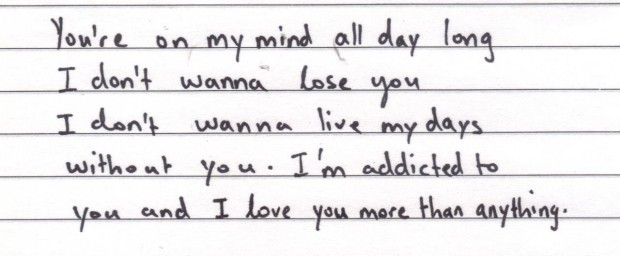 You're on my mind all day long
I don't wanna lose you
I don't wanna live my days
without you. I'm addicted to
you and I love you more than anything.